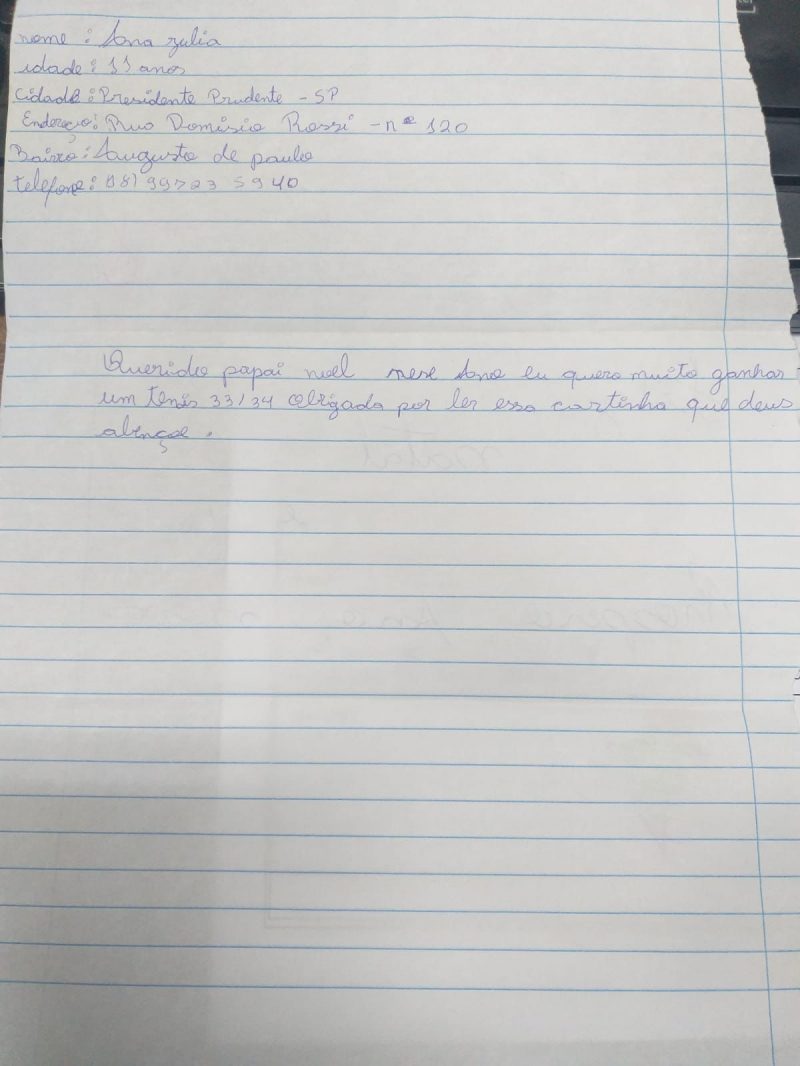 nome : Ana Julia
idade : 11 anos
Cidade : Presidente Prudente - SP
Endereço : Rua Domisio Rossi - nº 120
Bairro : Augusto de paula
telefone : 99723 5940
Querido papai noel nese Ano eu quero muito ganhar
um tenis 33/34 Obrigada por ler essa cartinha que deus
abençoe .